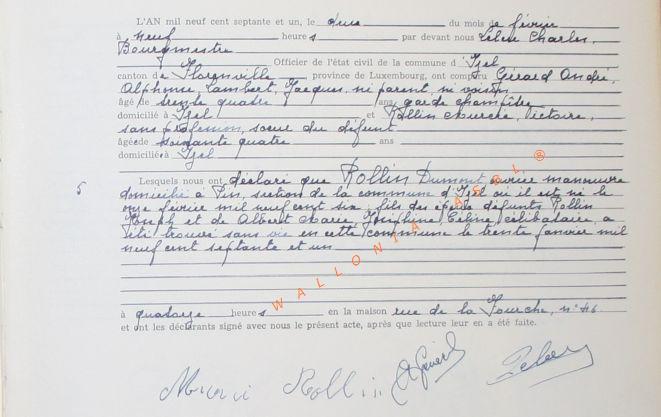 L'AN mil neuf cent septante et un, le deux du mois de février
à neuf heures par devant nous Charles,
Bourgmestre
Officier de l'état civil de la commune d'Izel
canton de Florenville province de Luxembourg, ont comparu Gérard André,
Alphonse, Lambert, Jacques, ni parent, ni voisin
âgé de trente quatre ans garde champêtre
domicilié à Izel et Rollin Victoire,
sans profession, soeur du défunt
âgée de soixante quatre ans
domiciliée à Izel
5 Lesquels nous ont déclaré que Rollin Dumont ouvrier manoeuvre
domicilié à Pin, section de la commune d'Izel où il est né le
onze février mil neuf cent six, fils des époux défunts Rollin
Joseph et de Albert Marie, Joséphine, Céline célibataire, a
été trouvé sans vie en cette commune le trente janvier mil
neuf cent septante et un
à quatorze heures en la maison rue de la n° 46
et ont les déclarants signé avec nous le présent acte, après que lecture leur en a été faite.
WALLONIA ASBL ®
Rollin